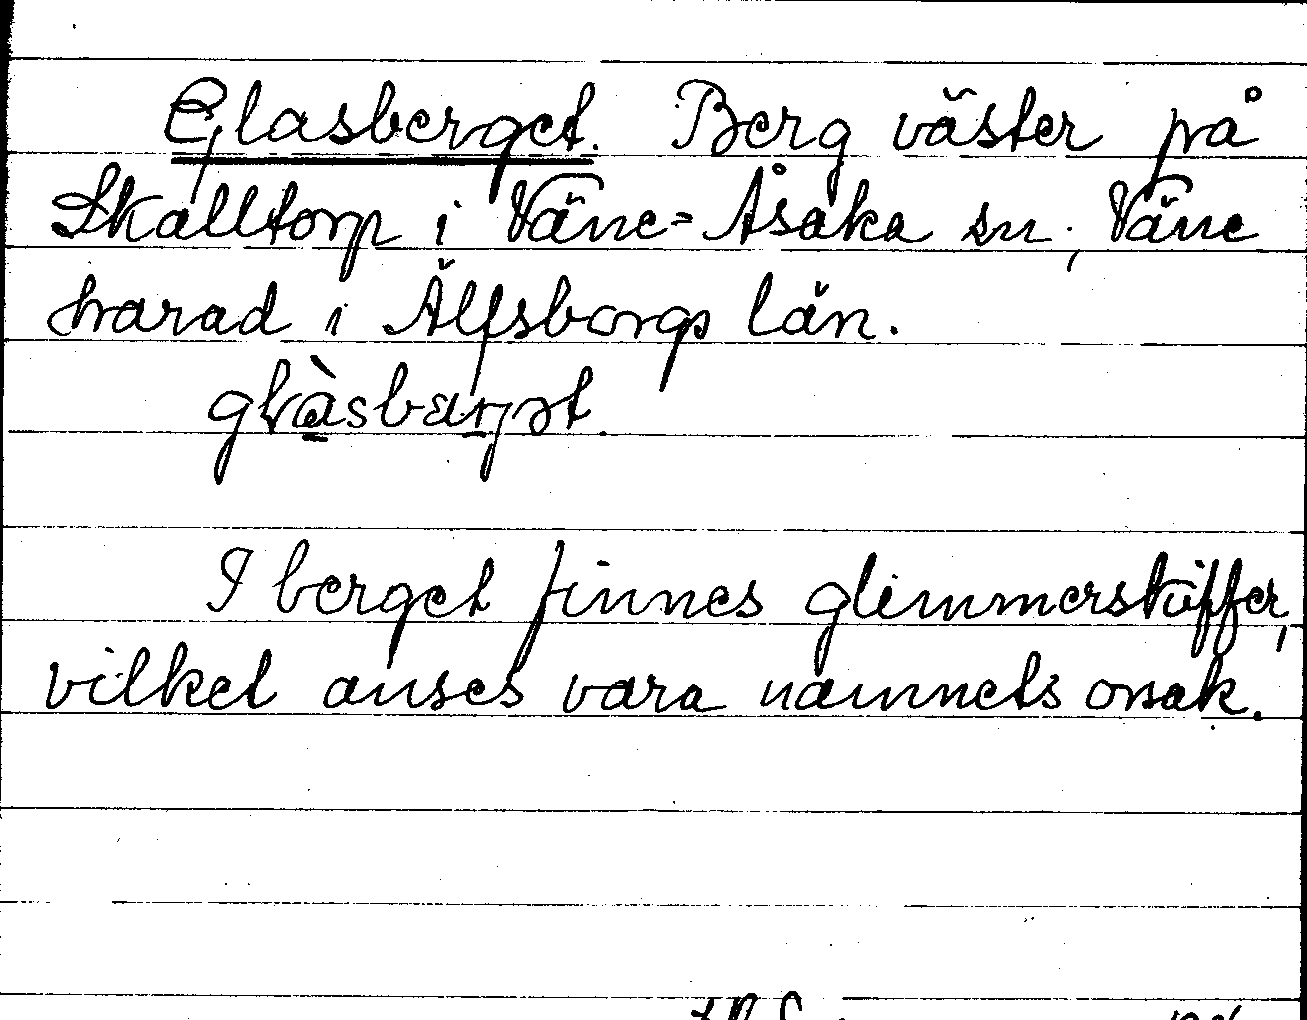 Glasberget. Berg väster på
Skalltorp i Väne-Åsaka sn, Väne
harad i Älfsborgs län.
I berget finnes glimmerskiffer,
vilket anses vara namnets orsak.